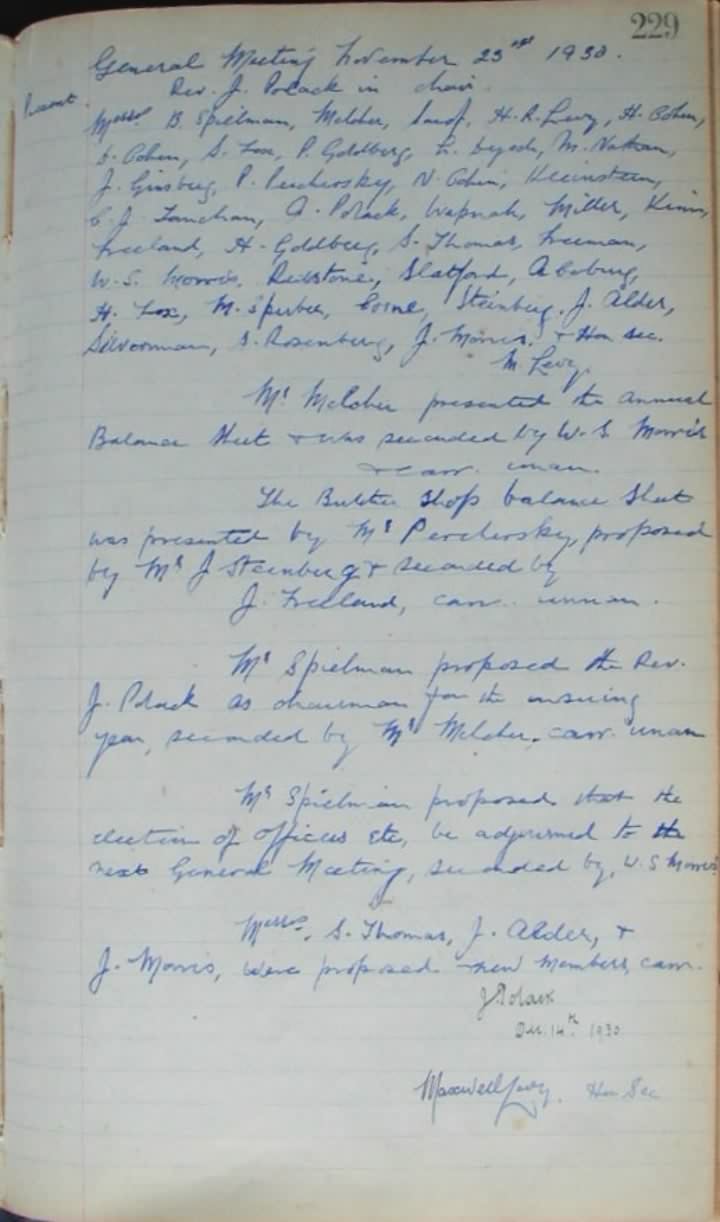 229
General Meeting November 23rd 1930.
Rev. J. Polack in chair.
Present. Messrs B. Spielman, Melcher, H. R. Levy, H. Cohen,
Cohen, S. Fox, P. Goldberg, M. Nathan,
J. Ginsberg, P. Perchersky, N. Cohen, Kleinstein,
J. A. Polack, Wapnah, Miller,
Freeland, H. Goldberg, S. Thomas, Freeman,
W. S. Morris, Redstone, Slatford, A
H. Fox, M. Sperber, Steinberg, J. Alder,
Silverman, S. Rosenberg, J. Morris, + Hon sec.
M. Levy.
Mr Melcher presented the annual
Balance Sheet + was seconded by W. S. Morris
+ carr. unan.
The Butcher Shops balance Sheet
was presented by Mr Perchersky, proposed
by Mr J Steinberg + seconded by
J. Freeland, carr. unan.
Mr Spielman proposed the Rev.
J. Polack as chairman for the ensuing
year, seconded by Mr Melcher, carr. unan
Mr Spielman proposed that the
election of Officers etc, be adjourned to the
next General Meeting, seconded by, W. S Morris
Messrs. S. Thomas, J. Alder, +
J. Morris, were proposed new Members, carr.
J Polack
Dec. 14th 1930
Maxwell Levy. Hon Sec